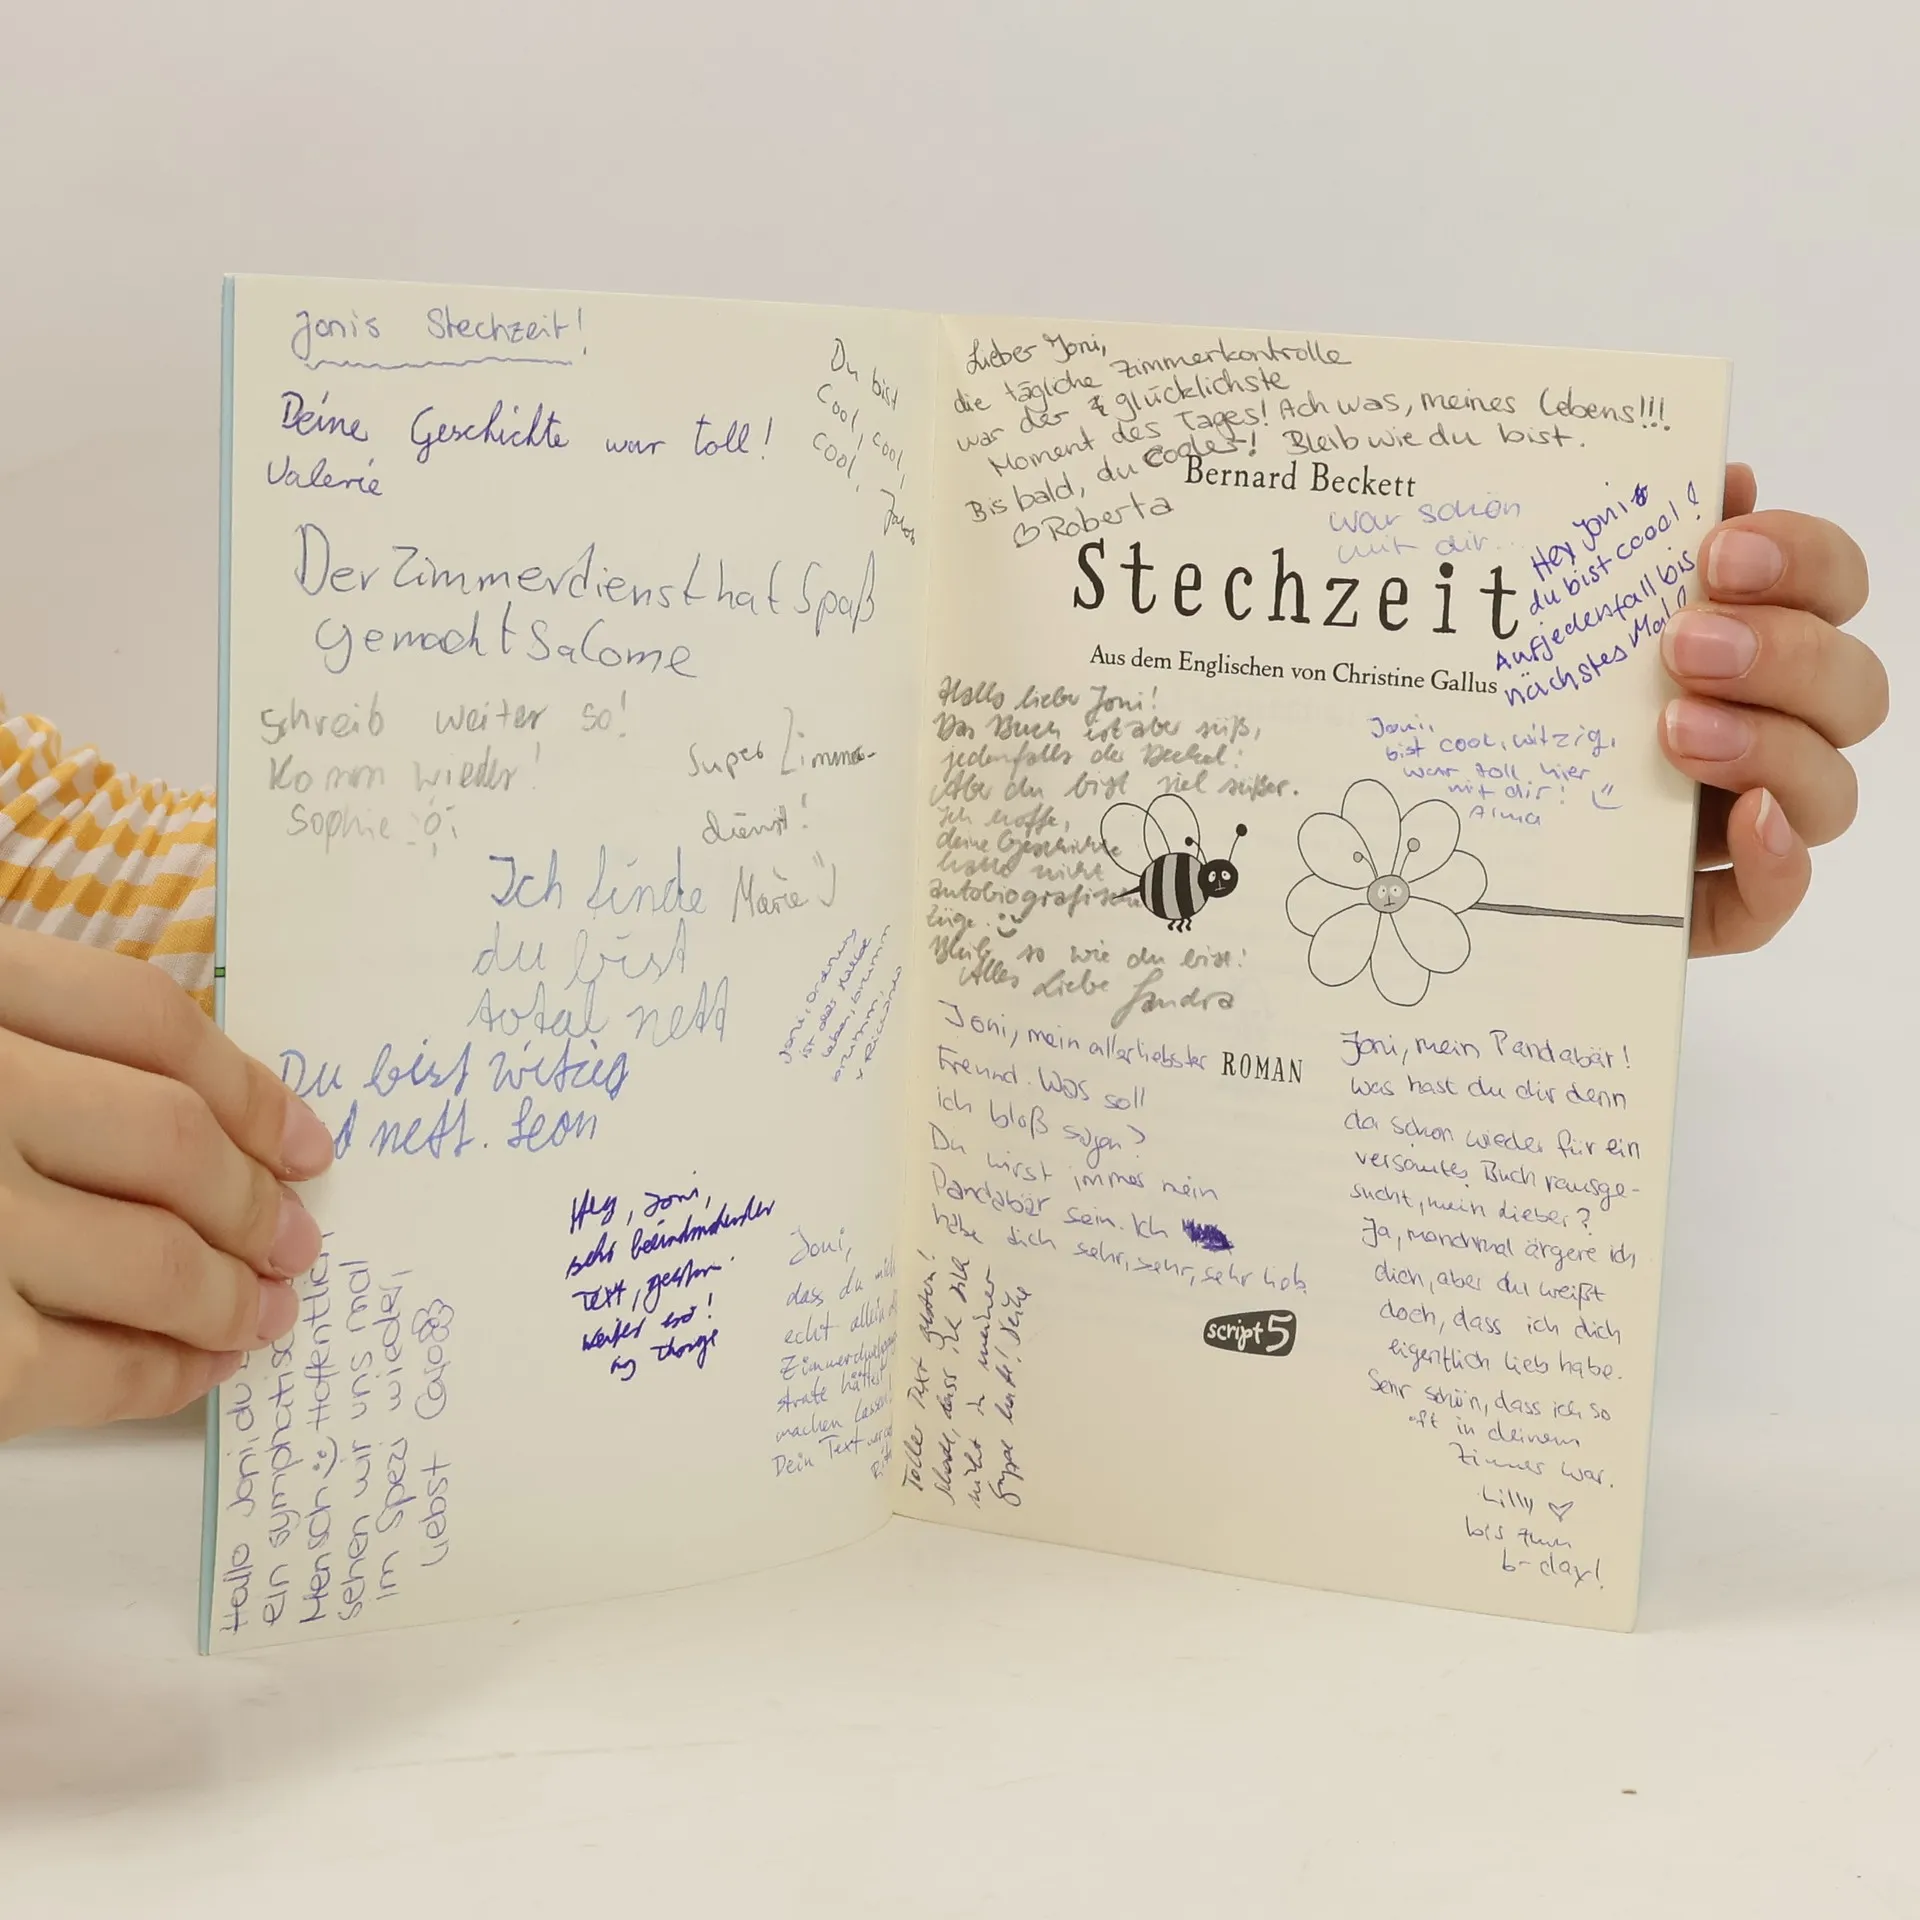 Jonis Stechzeit!
Deine Geschichte war toll!
Valerie
Du bist
cool, cool,
cool,
Der Zimmerdienst hat Spaß
gemacht Salome
schreib weiter so!
Komm wieder!
Sophie
Super Zimmer-
dienst!
Marie
Ich finde
du bist
total nett
Du bist witzig
nett. Leon
Joni, Ordnung
ist das halbe
Leben,
x Riccarda
Hey, Joni,
sehr beeindruckender
Text, gestern.
weiter so!
Joni,
dass du mich
echt allein
hättest
machen lassen!
Dein Text war
Hallo Joni, du
ein sympathisch
Mensch Hoffentlich
sehen wir uns mal
im Spezi wieder,
Liebst Caro
Lieber Joni,
die tägliche Zimmerkontrolle
war der glücklichste
Moment des Tages! Ach was, meines Lebens!!!
Bis bald, du Cooler! Bleib wie du bist.
Roberta
Bernard Beckett
war schön
mit dir...
Stechzeit
Aus dem Englischen von Christine Gallus
Hey Joni
du bist coool!
Aufjedenfall bis
nächstes Mal!
Hallo liebe Joni!
Das Buch ist aber süß,
jedenfalls der Deckel!
Aber du bist viel süßer.
Ich hoffe,
deine Geschichte
hatte nicht
autobiografische
Züge.
Bleib so wie du bist!
Alles Liebe Sandra
Joni,
bist cool, witzig,
war toll hier
mit dir!
Alma
Joni, mein allerliebster
Freund. Was soll
ich bloß sagen?
Du wirst immer mein
Pandabär sein. Ich
dich sehr, sehr, sehr lieb.
ROMAN
script5
Toller Text gestern!
Schade, dass ich dich
nicht in meiner
Gruppe hatte!
Joni, mein Pandabär!
was hast du dir denn
da schon wieder für ein
versautes Buch rausge-
sucht, mein Lieber?
Ja, manchmal ärgere ich
dich, aber du weißt
doch, dass ich dich
eigentlich lieb habe.
Sehr schön, dass ich so
oft in deinem
Zimmer war.
Lilly
bis zum
b-day!